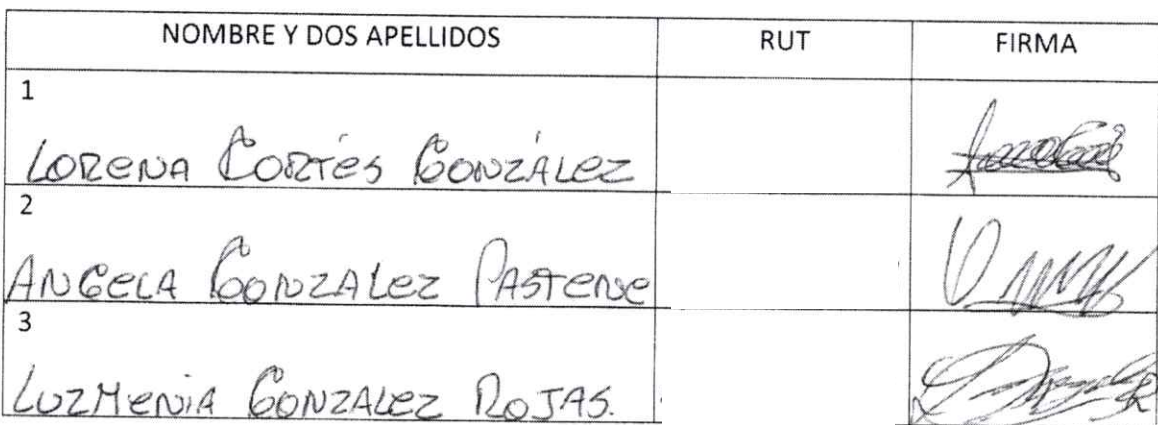 NOMBRE Y DOS APELLIDOS RUT FIRMA
1
LORENA CORTÉS GONZÁLEZ
2
ANGELA GONZALEZ PASTENE
3
LUZMENIA GONZALEZ ROJAS.